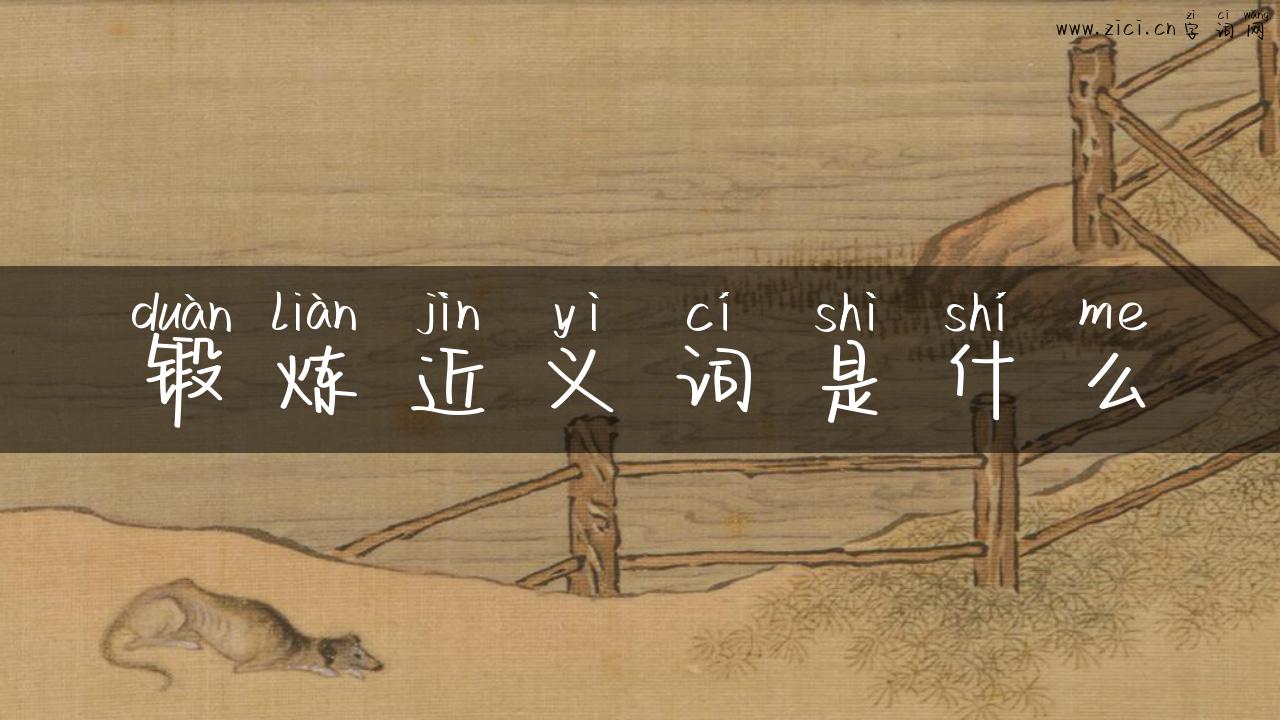 zì cí wǎng
www.zici.cn字词网
duàn liàn jìn yì cí shì shí me
锻炼近义词是什么